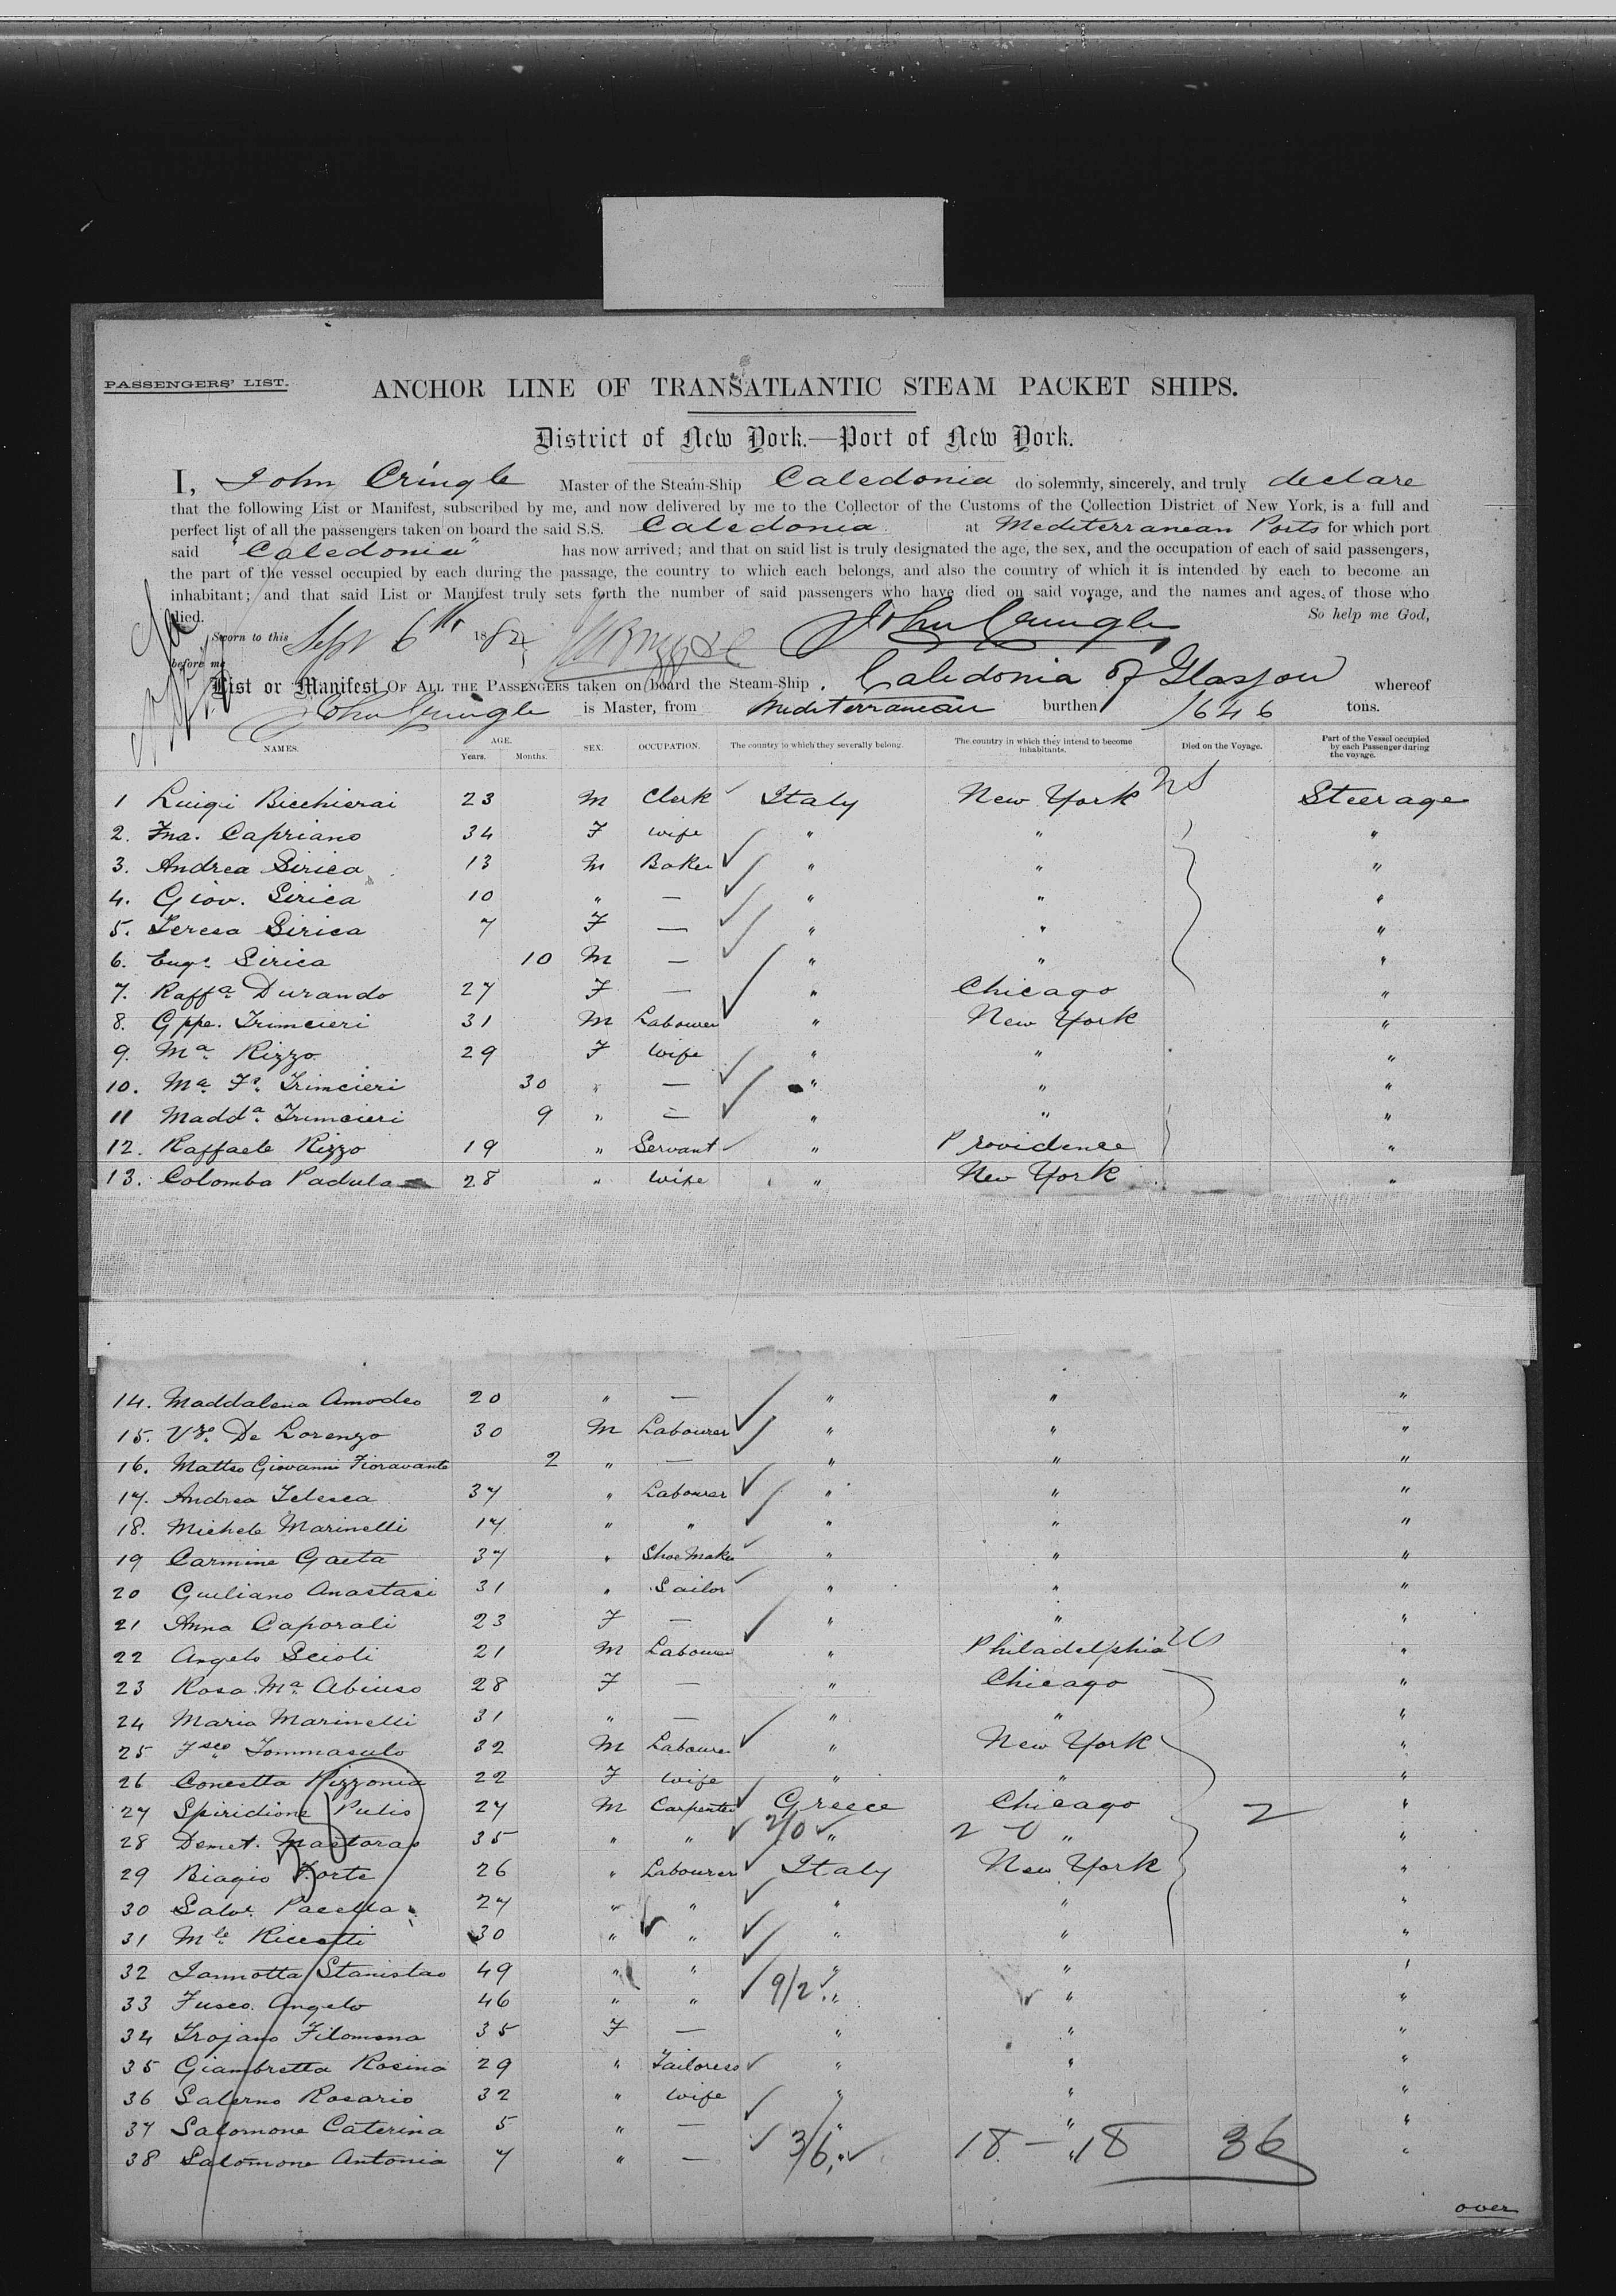 PASSENGERS' LIST.
ANCHOR LINE OF TRANSATLANTIC STEAM PACKET SHIPS.
District of New York.—Port of New York.
I, John Cringle Master of the Steam-Ship Caledonia do solemnly, sincerely, and truly declare
that the following List or Manifest, subscribed by me, and now delivered by me to the Collector of the Customs of the Collection District of New York, is a full and
perfect list of all the passengers taken on board the said S.S. Caledonia at Mediterranean Ports for which port
said "Caledonia" has now arrived; and that on said list is truly designated the age, the sex, and the occupation of each of said passengers,
the part of the vessel occupied by each during the passage, the country to which each belongs, and also the country of which it is intended by each to become an
inhabitant; and that said List or Manifest truly sets forth the number of said passengers who have died on said voyage, and the names and ages of those who
died. So help me God,
Sworn to this Sept 6th 1882 John Cringle
before me
List or Manifest OF ALL THE PASSENGERS taken on board the Steam-Ship Caledonia of Glasgow whereof
John Cringle is Master, from Mediterranean burthen 1646 tons.
NAMES. AGE. Years. Months. SEX. OCCUPATION. The country to which they severally belong. The country in which they intend to become inhabitants. Died on the Voyage. Part of the Vessel occupied by each Passenger during the voyage.
1 Luigi Bicchierai 23 M Clerk Italy New York Steerage
2. Fna. Capriano 34 F Wife " " "
3. Andrea Sirica 13 M Baker " " "
4. Giov. Sirica 10 " — " " "
5. Teresa Sirica 7 F — " " "
6. Eugo. Sirica 10 M — " " "
7. Raffa. Durando 27 F — " Chicago "
8. Gppe. Trimcieri 31 M Labourer " New York "
9. Ma. Rizzo 29 F Wife " " "
10. Ma. Fa. Trimcieri 30 " — " " "
11 Madda. Trimcieri 9 " — " " "
12. Raffaele Rizzo 19 " Servant " Providence "
13. Colomba Padula 28 " Wife " New York "
14. Maddalena Amodeo 20 " — " " "
15. Vzo. De Lorenzo 30 M Labourer " " "
16. Matteo Giovanni Fioravante 2 " — " " "
17. Andrea Telesca 37 " Labourer " " "
18. Michele Marinelli 17 " " " " "
19 Carmine Gaeta 37 " Shoe Maker " " "
20 Guiliano Anastasi 31 " Sailor " " "
21 Anna Caporali 23 F — " " "
22 Angelo Scioli 21 M Labourer " Philadelphia "
23 Rosa Ma. Abiuso 28 F — " Chicago "
24 Maria Marinelli 31 " — " " "
25 Fsco Tommasulo 32 M Labourer " New York "
26 Concetta Rizzonia 22 F Wife " " "
27 Spiridione Pulis 27 M Carpenter Greece Chicago 2 "
28 Demet. Mastoras 35 " " 2/0 " 2 - 0 " "
29 Biagio Forte 26 " Labourer Italy New York "
30 Salve. Pacella 27 " " " " "
31 Mle. Riccotti 30 " " " " "
32 Iannotta Stanislao 49 " " " " "
33 Fusco Angelo 46 " " 9/2 " " "
34 Trojano Filomena 35 F — " " "
35 Giambretta Rosina 29 " Tailoress " " "
36 Salerno Rosario 32 " Wife " " "
37 Salomone Caterina 5 " — " " "
38 Salomone Antonia 7 " — 3/6 " 18 — " 18 36 "
over